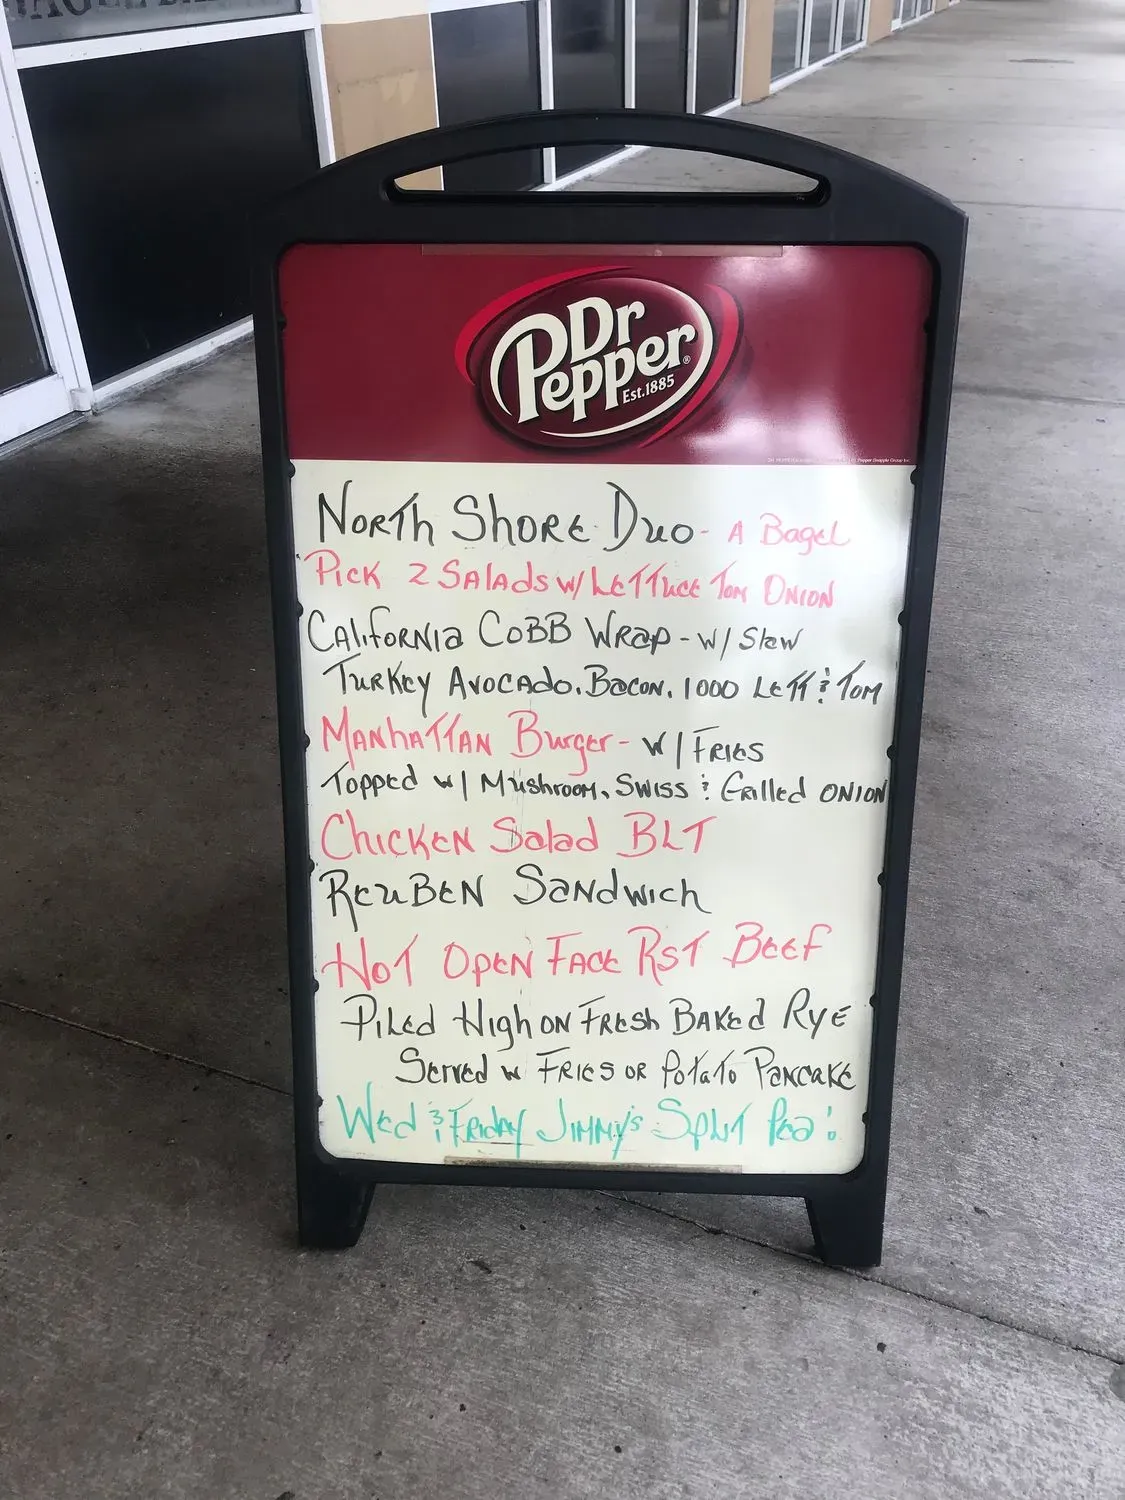 Dr
Pepper
Est.1885
North Shore Duo - A Bagel
Pick 2 Salads w/ Lettuce Tom Onion
California Cobb Wrap - w/ Slaw
Turkey Avocado, Bacon, 1000 Lett & Tom
Manhattan Burger - w/ Fries
Topped w/ Mushroom, Swiss & Grilled Onion
Chicken Salad BLT
Reuben Sandwich
Hot Open Face Rst Beef
Piled High on Fresh Baked Rye
Served w Fries or Potato Pancake
Wed & Friday Jimmy's Split Pea!